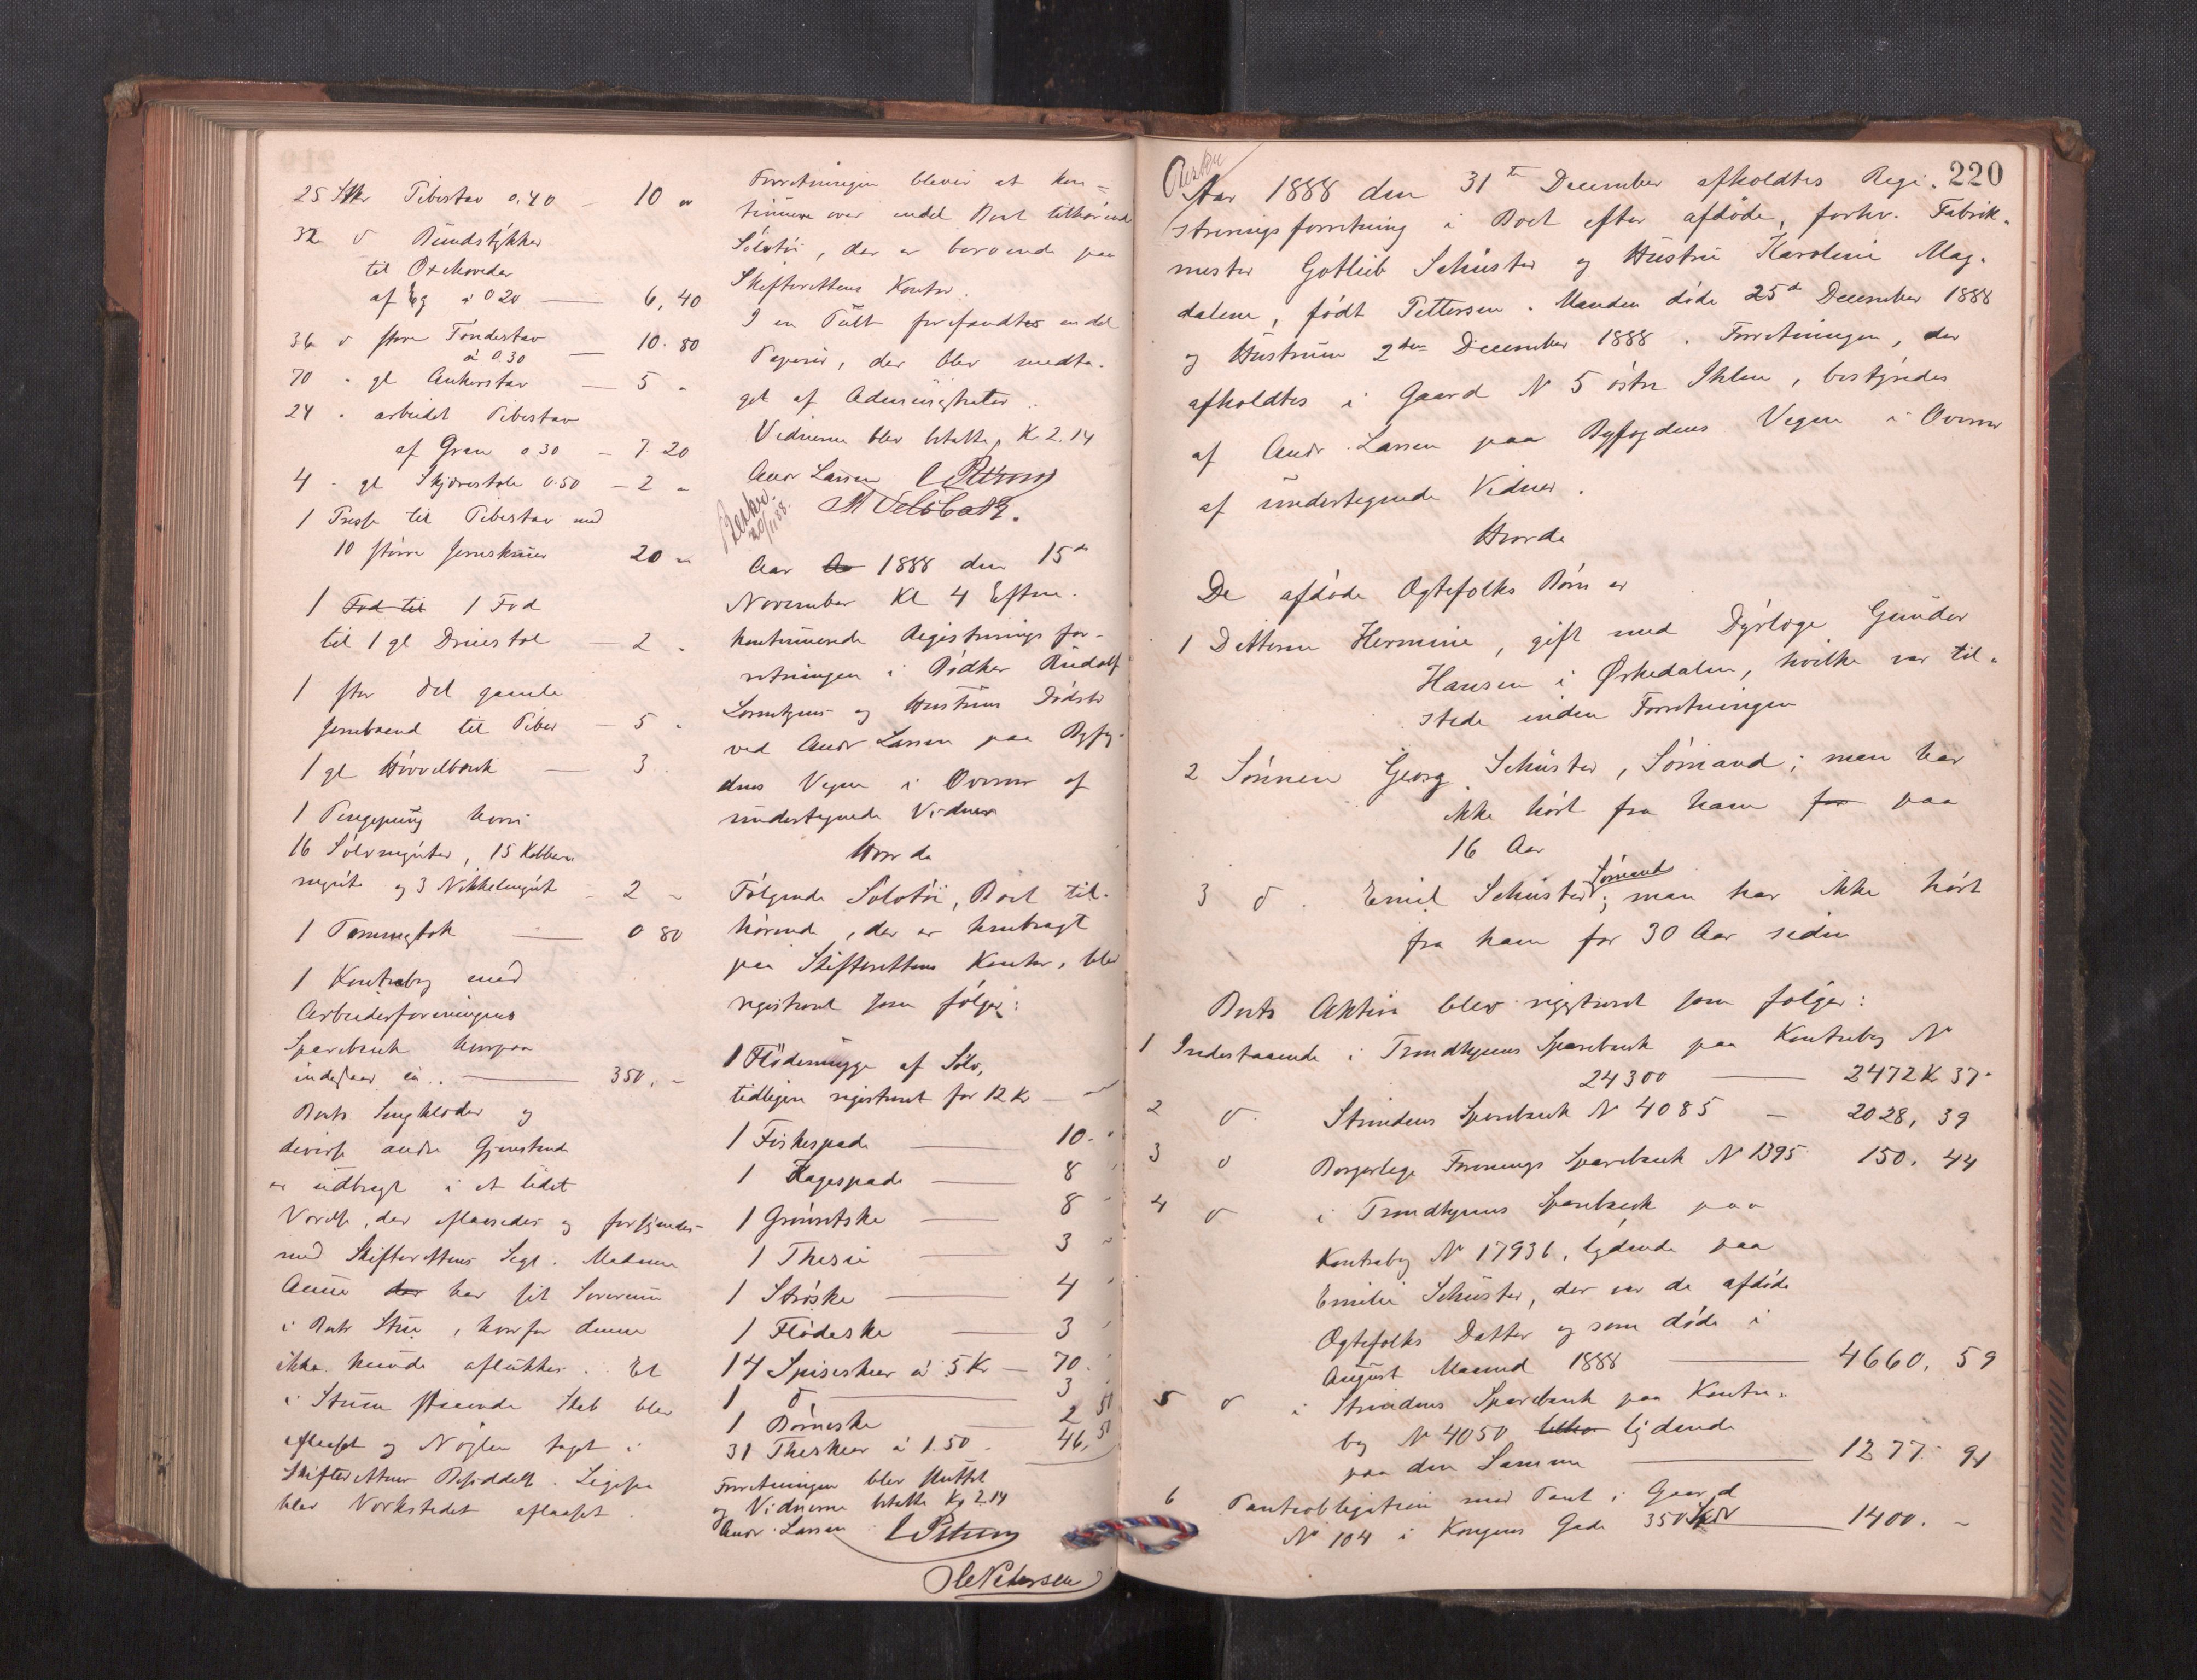 25 Stkr Pibestav 0,40 — 10 "
32 d Bundstykker
til Oxehoveder
af Eg à 0 20 — 6,40
36 d store Tøndestav
à 0.30 — 10.80
70 " gl Ankerstav — 5 "
24 " arbeidet Pibestav
af Gran 0 30 — 7.20
4 " gl Skjærestole 0.50 — 2 "
1 Presse til Pibestav med
10 større Jernskruer 20 "
1 Fod til 1 Fod
til 1 gl Dreiestol — 2 "
1 stor Del gamle
Jernbaand til Piber — 5 "
1 gl Høvelbænk — 3
1 Pengepung hvori
16 Sølvmynter, 15 Kobber
mynter og 3 Nikkelmynt — 2 "
1 Tommestok — 0 80
1 Kontrabog med
Arbeiderforeningens
Sparebank hvorpaa
indestaar ca.. — 350. "
Boets Sengklæder og
diverse andre Gjenstande
er udbragt i et lidet
Værelse, der aflaasedes og forsynedes
med Skifterettens Segl. Madame
Aune der har sit Soverum
i Boets Stue, hvorfor denne
ikke kunde aflukkes. Et
i Stuen staaende Skab blev
aflaaset og Nøglen taget i
Skifterettens Besiddelse. Ligesaa
blev Værkstedet aflaaset.
Forretningen bliver at kon=
tinuere over endel Boet tilhørende
Sølvtøi, der er beroende paa
Skifterettens Kontor.
I en Pult forefandtes endel
Papirer, der blev medta-
get af Administrator.
Vidnerne blev betalte, Kr 2.14
Andr Larsen C Petersen
Beskr.
20/11 88.
Aar Aa 1888 den 15de
November Kl 4 Efterm.
kontinuerede Registreringsfor-
retningen i Bødker Rudolf
Lorentzens og Hustrues Dødsbo
ved Andr Larsen paa Byfog-
dens Vegne i Overvær af
undertegnede Vidner
Hvorda
Følgende Sølvtøi, Boet til-
hørende, der er henbragt
paa Skifterettens Kontor, blev
registreret som følger:
1 Flødemugge af Sølv,
tidligere registreret for 12 Kr — "
1 Fiskespade — 10. "
1 Kagespade — 8 "
1 Grøndske — 8 "
1 Thesie — 3 "
1 Strøske — 4 "
1 Flødeske — 3 "
14 Spiseskeer à 5 Kr — 70. "
1 d — 3
1 Børneske — 2 50
31 Theskeer à 1.50 — 46, 50
Forretningen blev sluttet
og Vidnerne betalte Kr 2.14
Andr. Larsen C Petersen
Ole Petersen
220
Beskr
Aar 1888 den 31te December afholdtes Regi-
streringsforretning i Boet efter afdøde, forhv. Fabrik-
mester Gotlieb Schuster og Hustru Karoline Mag-
dalene, født Pettersen. Manden døde 25de December 1888
og Hustruen 2den December 1888. Forretningen, der
afholdtes i Gaard N 5 østre Ihlen, bestyredes
af Andr. Larsen paa Byfogdens Vegne i Overvær
af undertegnede Vidner.
Hvorda
De afdøde Ægtefolks Børn er
1 Datteren Hermine, gift med Dyrlæge Gunder
Hansen i Ørkedalen, hvilke var til-
stede under Forretningen
2 Sønnen Georg Schuster, Sømand; man har
ikke hørt fra ham for paa
16 Aar
3 d. Emil Schuster, Sømand; man har ikke hørt
fra ham for 30 Aar siden
Boets Aktiva blev registreret som følger:
1 Indestaaende i Trondhjems Sparebank paa Kontrabog N
24300 — 2472 Kr 37.
2 d. Strindens Sparebank N 4085 — 2028, 39
3 d Borgerlige Forenings Sparebank N 1395 150. 44
4 d i Trondhjems Sparebank paa
Kontrabog N 17936, lydende paa
Emilie Schuster, der var de afdøde
Ægtefolks Datter og som døde i
August Maaned 1888 — 4660, 59
5 d i Strindens Sparebank paa Kontra-
bog N 4050 lydende
paa den Samme — 1277. 91
6 Panteobligation med Pant i Gaard
N 104 i Kongens Gade 350 Spdr — 1400. "